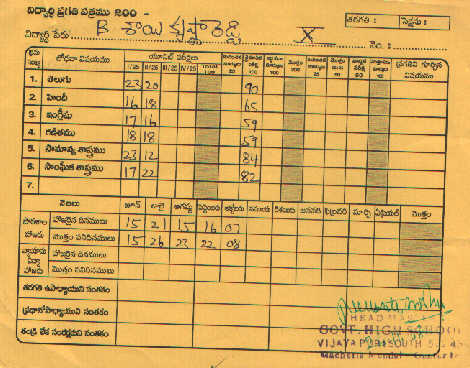 విద్యార్థి ప్రగతి పత్రము 200 -
తరగతి : సెక్షను :
విద్యార్థి పేరు B సాయి కృష్ణారెడ్డి X నెం :
యూనిట్ పరీక్షలు
బోధనా విషయము I/25 II/25 III/25 IV/25
1. తెలుగు 23 20 90
2. హిందీ 16 18 65
3. ఇంగ్లీషు 17 16 59
4. గణితము 18 18 59
5. సామాన్య శాస్త్రము 23 12 84
6. సాంఘిక శాస్త్రము 17 22 82
7.
నెలలు జూన్ జూలై ఆగష్టు సెప్టెంబరు అక్టోబరు నవంబరు డిశంబరు జనవరి ఫిబ్రవరి మార్చి ఏప్రియల్ మొత్తం
హాజరైన దినములు 15 21 15 16 07
హాజరు మొత్తం పనిదినములు 15 26 23 22 08
హాజరైన దినములు
హాజరు మొత్తం పనిదినములు
తరగతి ఉపాధ్యాయుని సంతకం
ప్రధానోపాధ్యాయుని సంతకం
తండ్రి లేక సంరక్షకుని సంతకం
GOVT. HIGH SCHOOL
VIJAYAPURI SOUTH